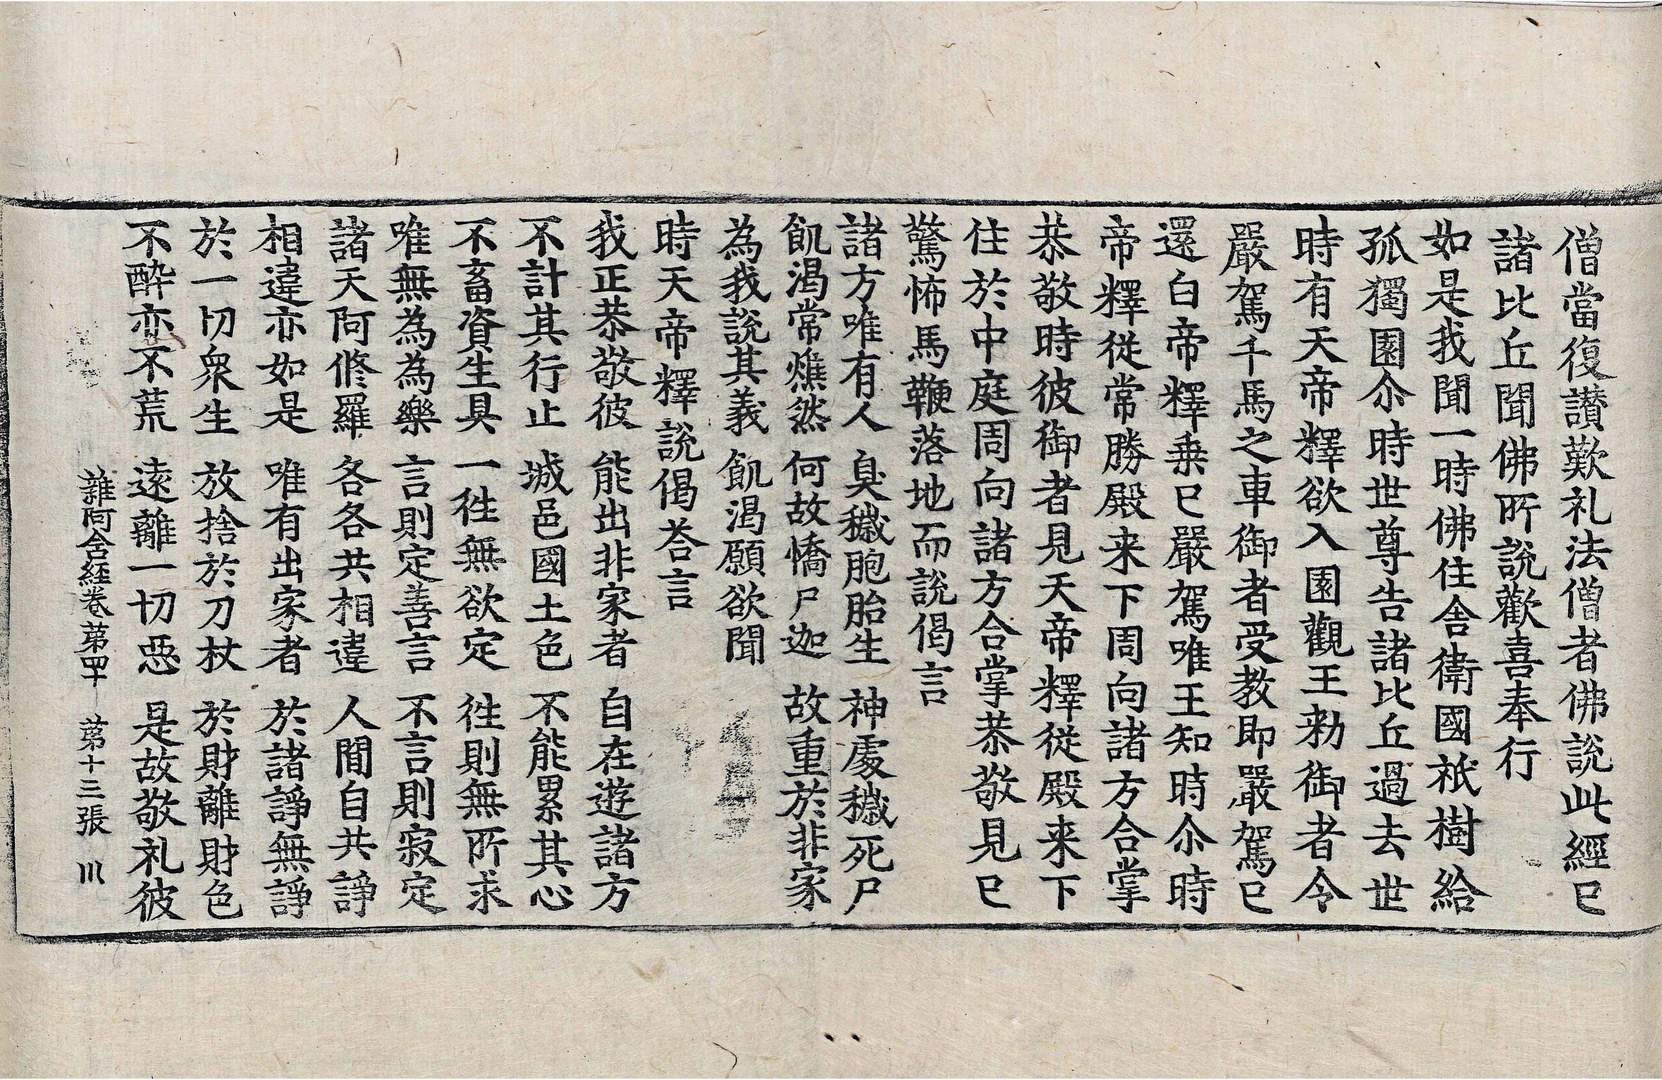 僧當復讃歎礼法僧者佛說此經已
諸比丘聞佛所說歡喜奉行
如是我聞一時佛住舍衛國祇樹給
孤獨園尒時世尊告諸比丘過去世
時有天帝釋欲入園觀王勑御者令
嚴駕千馬之車御者受教即嚴駕已
還白帝釋乗已嚴駕唯王知時尒時
帝釋從常勝殿来下周向諸方合掌
恭敬時彼御者見天帝釋從殿来下
住於中庭周向諸方合掌恭敬見已
驚怖馬鞭落地而說偈言
諸方唯有人 臭穢胞胎生 神處穢死尸
飢渴常燋然 何故憍尸迦 故重於非家
為我說其義 飢渴願欲聞
時天帝釋說偈荅言
我正恭敬彼 能出非家者 自在遊諸方
不計其行止 城邑國土色 不能累其心
不畜資生具 一徃無欲定 徃則無所求
唯無為為樂 言則定善言 不言則寂定
諸天阿修羅 各各共相違 人間自共諍
相違亦如是 唯有出家者 於諸諍無諍
於一切衆生 放捨於刀杖 於財離財色
不醉亦不荒 遠離一切惡 是故敬礼彼
雜阿含經卷第四十 第十三張 川